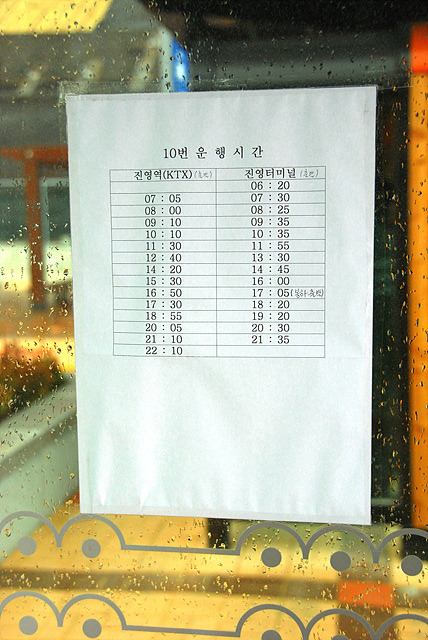 10번 운 행 시 간
진영역(KTX) (출발) 진영터미널 (출발)
06 : 20
07 : 05 07 : 30
08 : 00 08 : 25
09 : 10 09 : 35
10 : 10 10 : 35
11 : 30 11 : 55
12 : 40 13 : 30
14 : 20 14 : 45
15 : 30 16 : 00
16 : 50 17 : 05
17 : 30 18 : 20
18 : 55 19 : 20
20 : 05 20 : 30
21 : 10 21 : 35
22 : 10